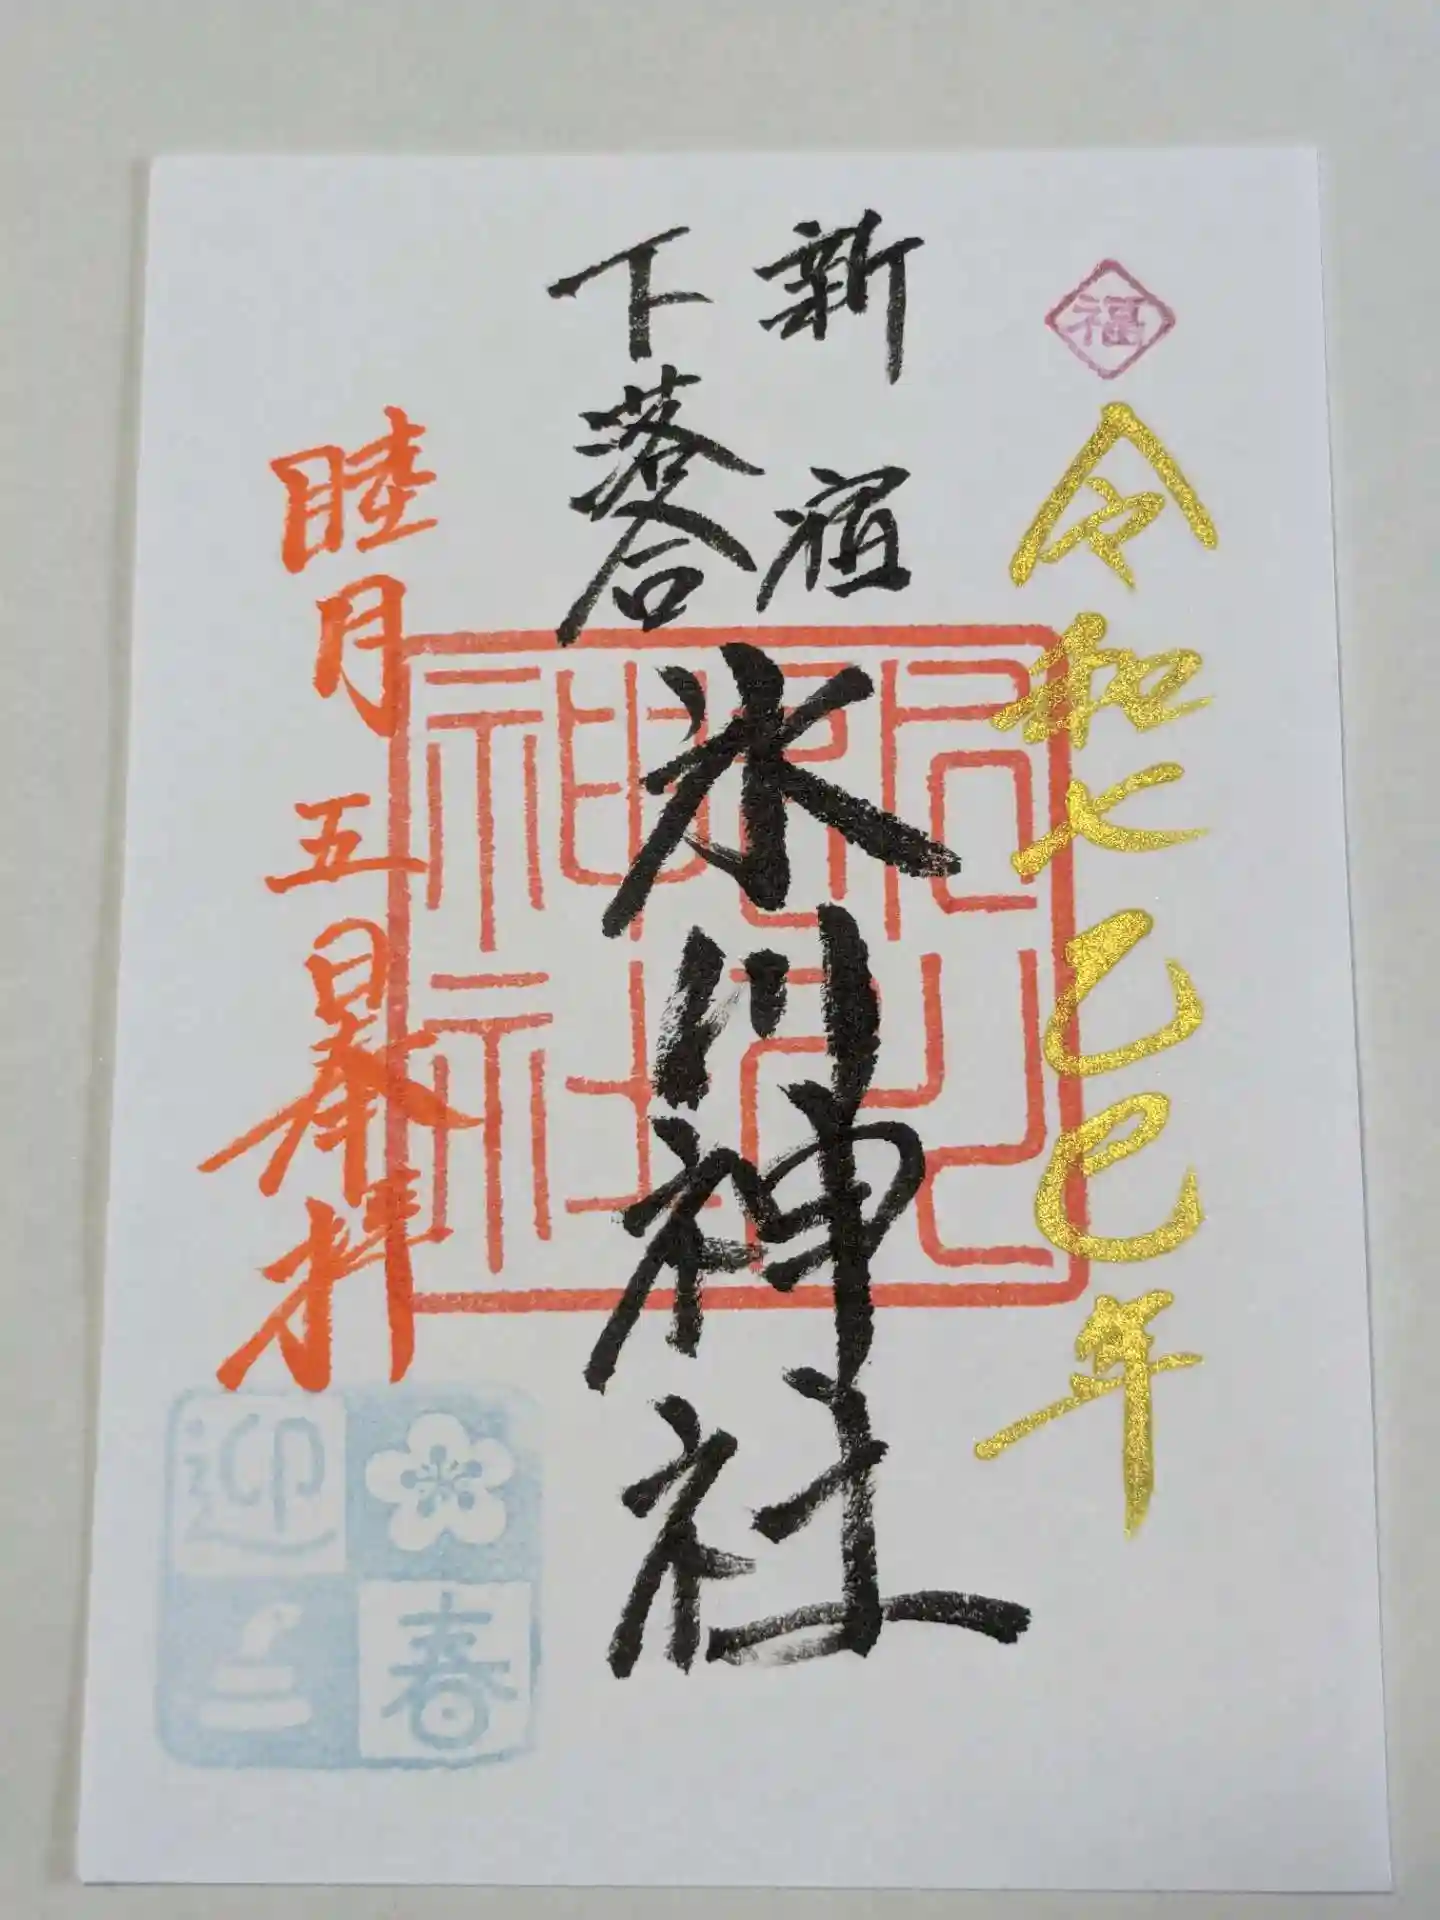 福
令和七乙巳年
新宿
下落合
氷川神社
睦月五日奉拝
迎春